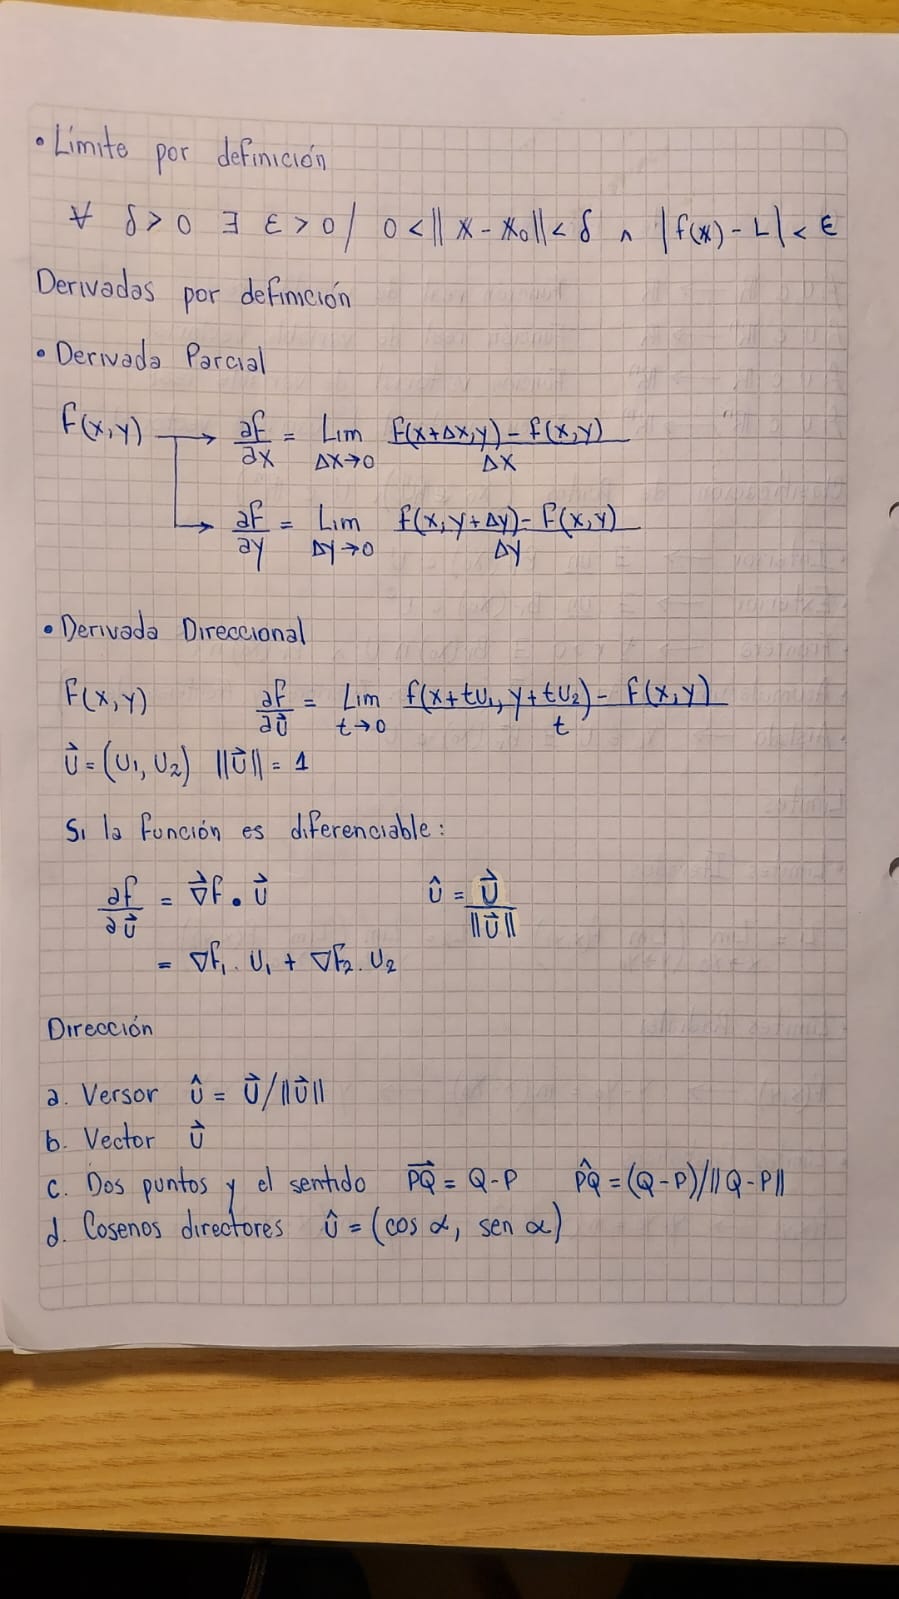 • Límite por definición
∀ δ > 0 ∃ ε > 0 / 0 < ‖x - x₀‖ < δ ∧ |f(x) - L| < ε
Derivadas por definición
• Derivada Parcial
f(x,y) → ∂f/∂x = Lim Δx→0 f(x+Δx,y) - f(x,y) / Δx
→ ∂f/∂y = Lim Δy→0 f(x,y+Δy) - f(x,y) / Δy
• Derivada Direccional
f(x,y) ∂f/∂Ǔ = Lim t→0 f(x+tU₁, y+tU₂) - f(x,y) / t
U⃗ = (U₁, U₂) ‖U⃗‖ = 1
Si la función es diferenciable:
∂f/∂U⃗ = ∇⃗f • U⃗ Û = U⃗/‖U⃗‖
= ∇f₁ . U₁ + ∇f₂ . U₂
Dirección
a. Versor Û = U⃗/‖U⃗‖
b. Vector U⃗
c. Dos puntos y el sentido PQ⃗ = Q-P PQ̂ = (Q-P)/‖Q-P‖
d. Cosenos directores Û = (cos α, sen α)